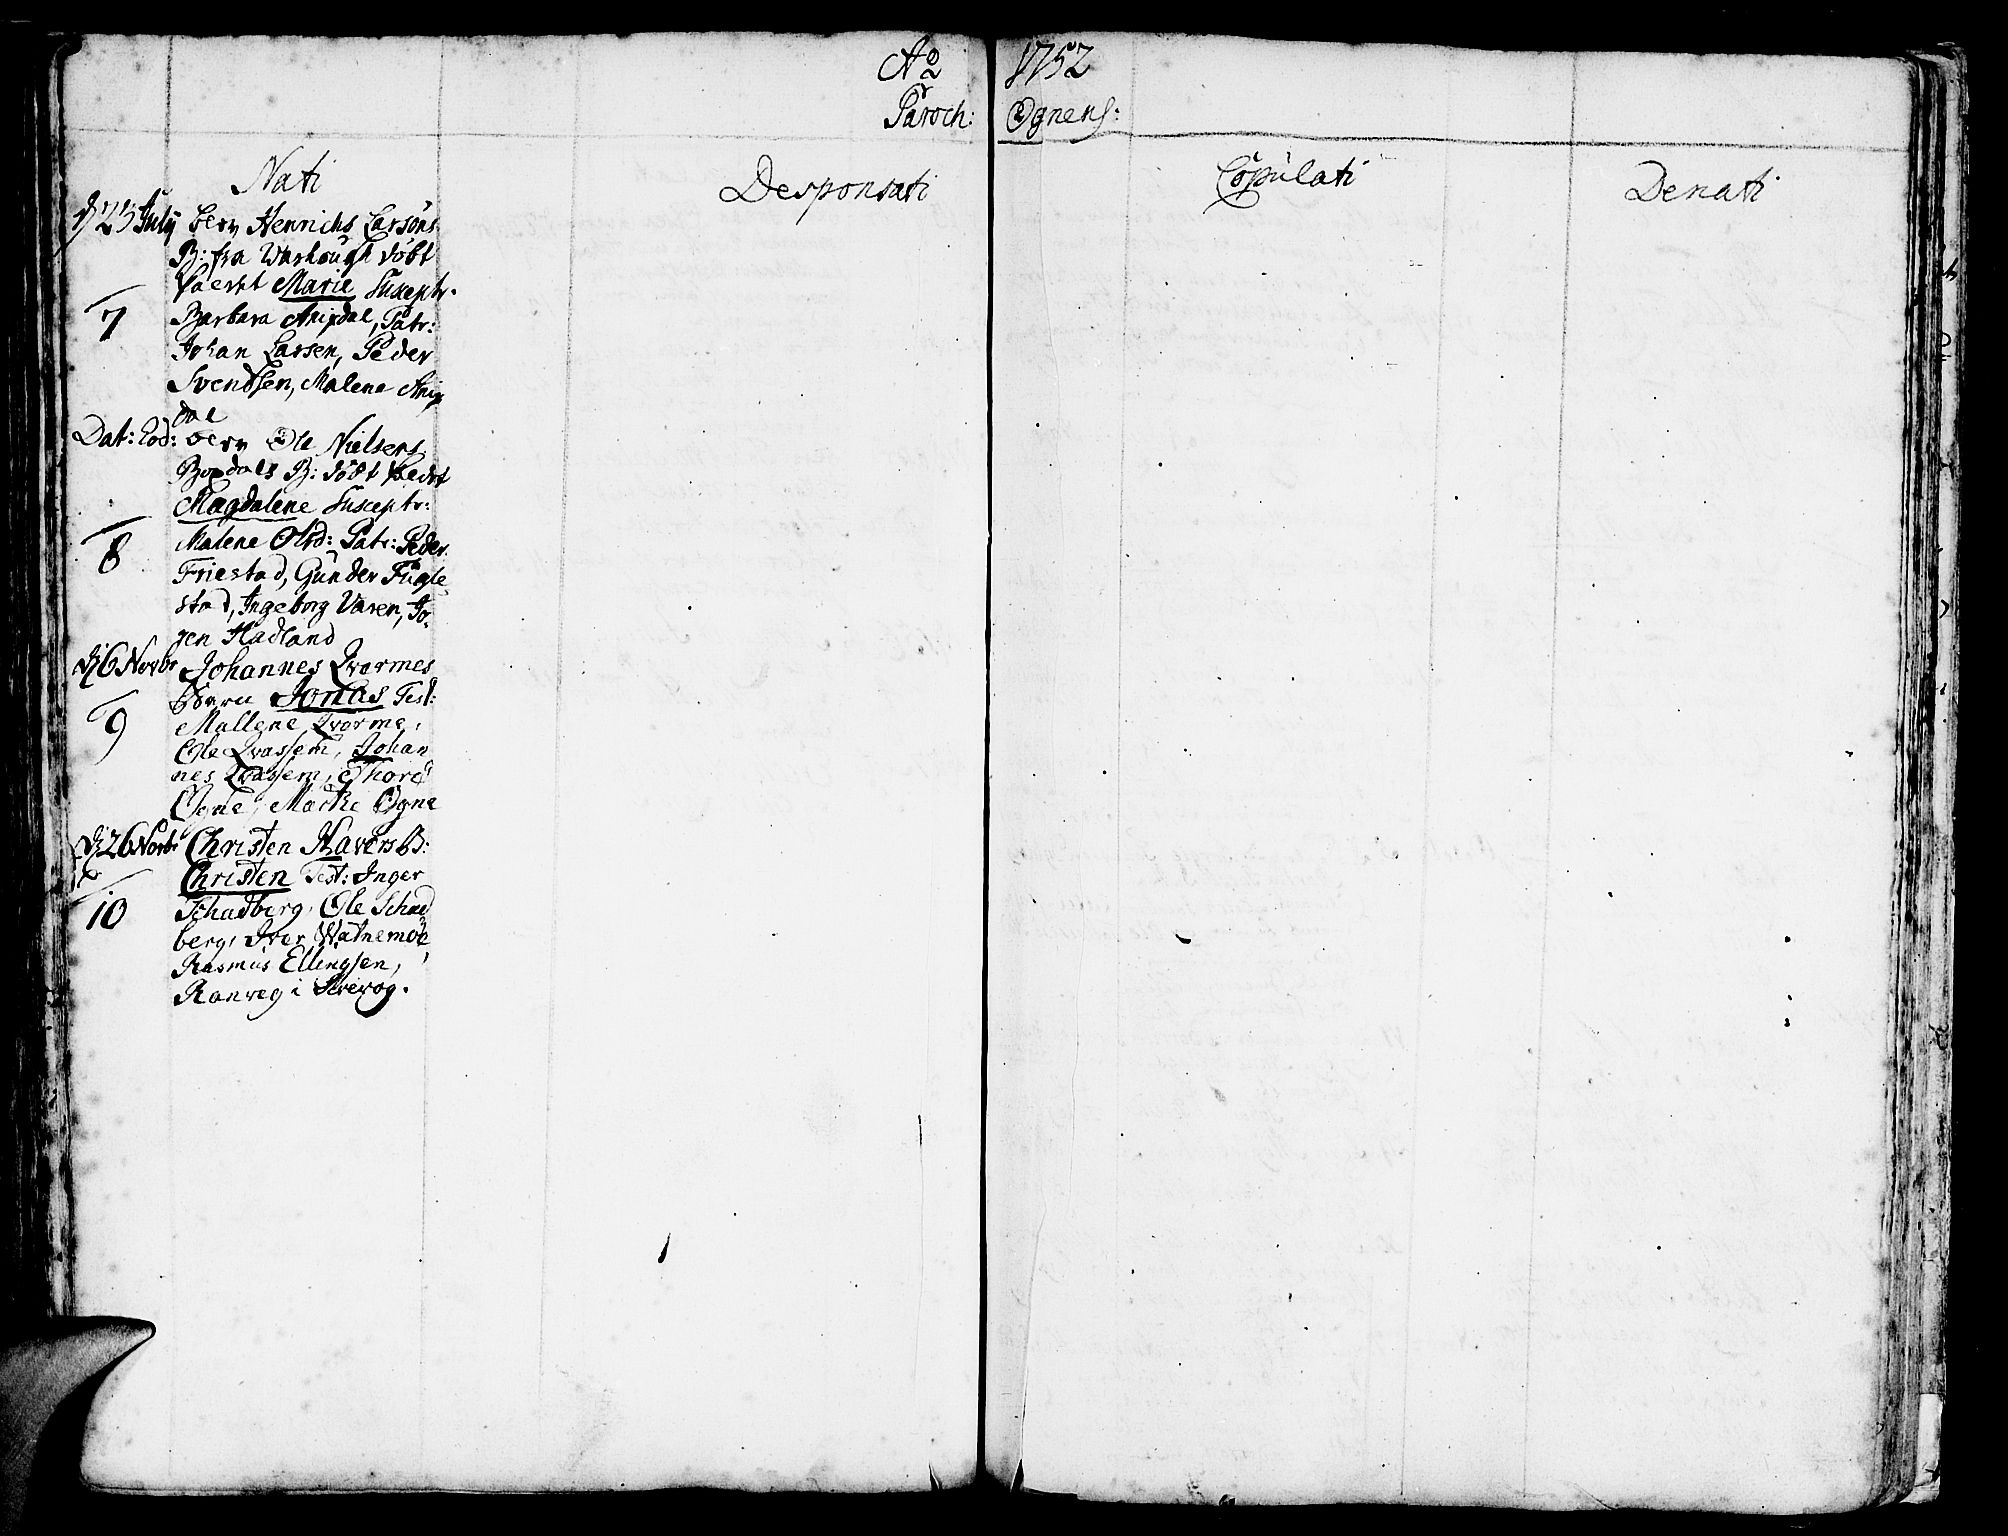 Aō 1752
Paroch: Ognens:
Nati
Desponsati
Copulati
Denati
d 23 July
blev Henrichs Larsöns
B: fra Warhough döbt
kaldet Marie Susceptr.
7
Barbara Anisdal, Patr:
Johan Larsen, Peder
Svendsen, Malene Anis
dal
Dat: Eod:
blev Ole Nielsens
B: döbt kaldt
Magdalene Susceptr:
8
Malene Olsd: Patr: Peder
Friestad, Gunder Fugle
stad, Ingeborg Varen, Jo-
gen Hadland
d 6 Novbr
Johannes Qvormes
Barn Jonas Test:
9
Mallene Qvorme,
Ole Qvassem, Johan
nes Qvassem, Thore
Ogne, Marthe Ogne
d 26 Novbr
Christen Haversb:
Christen Test: Inger
10
Schadberg, Ole Schad
berg, Iver Watnemoe,
Rasmus Ellingsen,
Ranveg i